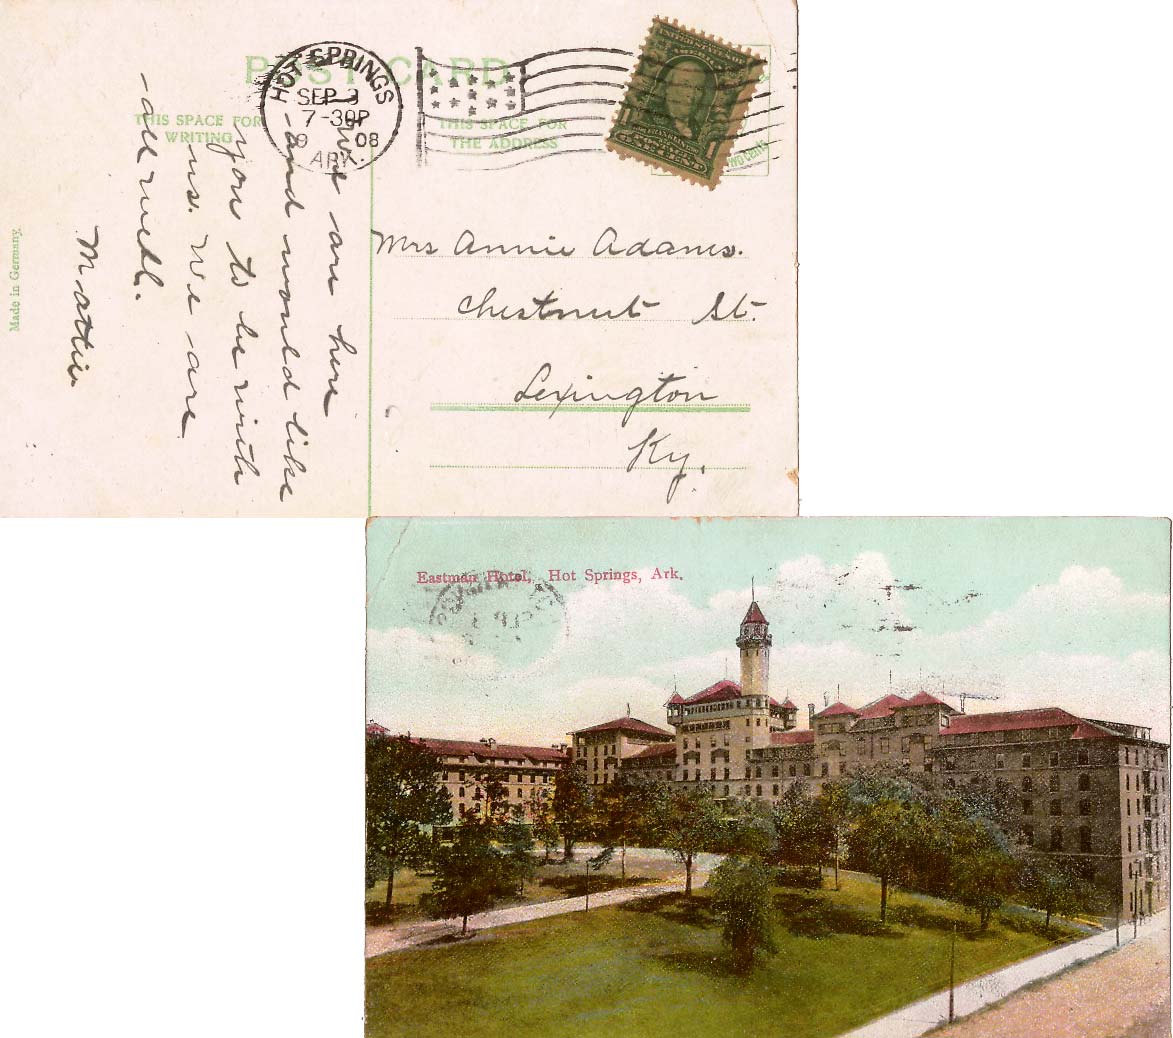 POST CARD
THIS SPACE FOR
WRITING
THIS SPACE FOR
THE ADDRESS
HOT SPRINGS
SEP 3
7-30P
08
ARK.
1
Two Cents
Made in Germany.
We are here
and would like
you to be with
us. We are
all well.
Mattie.
Mrs Annie Adams.
Chestnut St.
Lexington
Ky.
Eastman Hotel, Hot Springs, Ark.